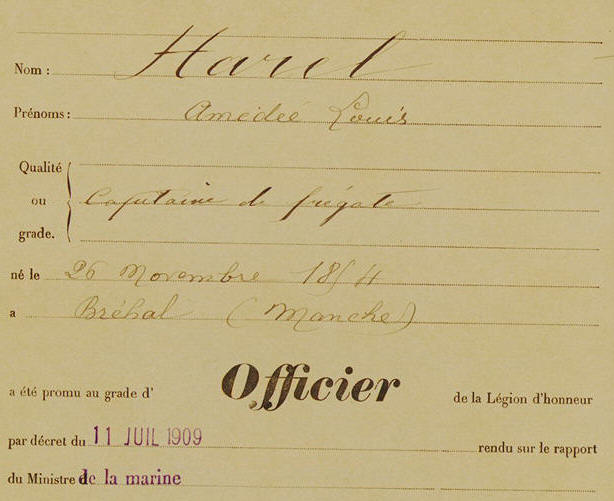 Nom : Harel
Prénoms : Amédée Louis
Qualité
ou Capitaine de frégate
grade.
né le 26 Novembre 1854
a Bréhal (Manche)
a été promu au grade d' Officier de la Légion d'honneur
par décret du 11 JUIL 1909 rendu sur le rapport
du Ministre de la marine